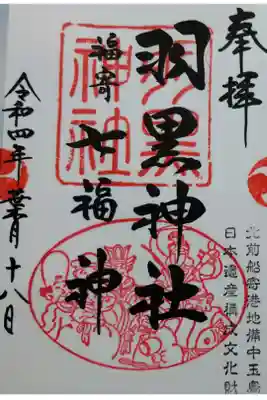 奉拝
羽黒神社
福寄
七福神
令和四年葉月十八日
北前船寄港地備中玉島
日本遺産構成文化財